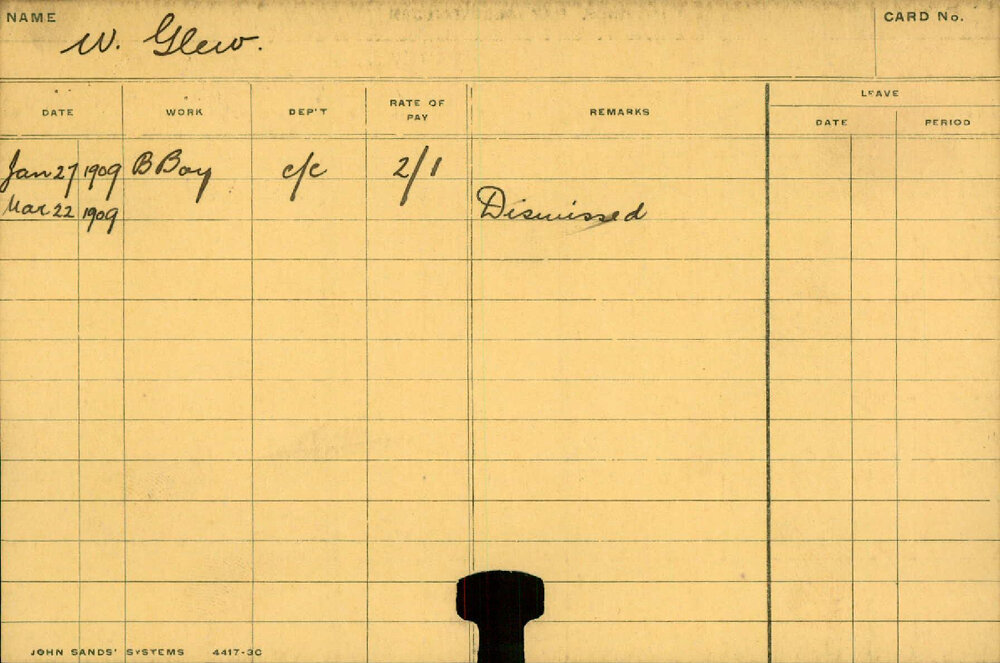 NAME W. Glew. CARD No.
LEAVE
DATE WORK DEP'T RATE OF PAY REMARKS DATE PERIOD
Jan 27 1909 B Boy c/c 2/1
Mar 22 1909 Dismissed
JOHN SANDS' SYSTEMS 4417-3C